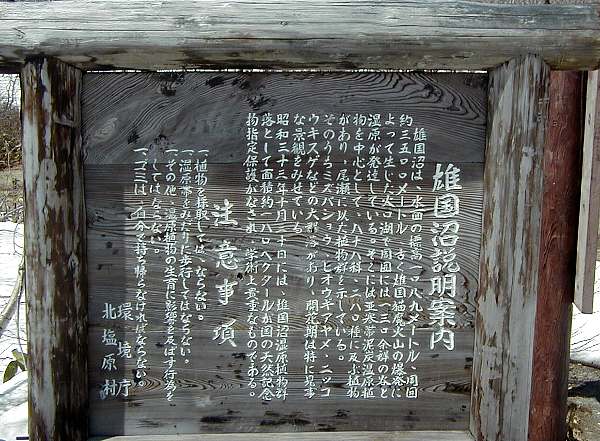 雄国沼説明案内
雄国沼は、水面の標高一〇八九メートル、周囲
約三五〇〇メートル、古く雄国猫魔火山の爆発に
よって生じた火口湖で周囲には一三〇余群の谷と
湿原が発達している。そこには亜寒帯泥炭湿原植
物を中心として、八十八科、二八〇種に及ぶ植物
があり、尾瀬に似た植物群を示している。
そのうちミズバショウ、ヒオウギアヤメ、ニッコ
ウキスゲなどの大群落があり、開花期は特に見事
な景観をみせている。
昭和三十三年十月三十日には、雄国沼湿原植物群
落として面積約一八〇ヘクタールが国の天然記念
物指定保護がなされ、学術上貴重なものである。
注意事項
一、植物を採取しては、ならない。
一、湿原帯をみだりに歩行してはならない。
一、その他、湿原植物の生育に影響を及ぼす行為を
してはならない。
一、ゴミは、自分で持ち帰らなければならない。
環境庁
北塩原村